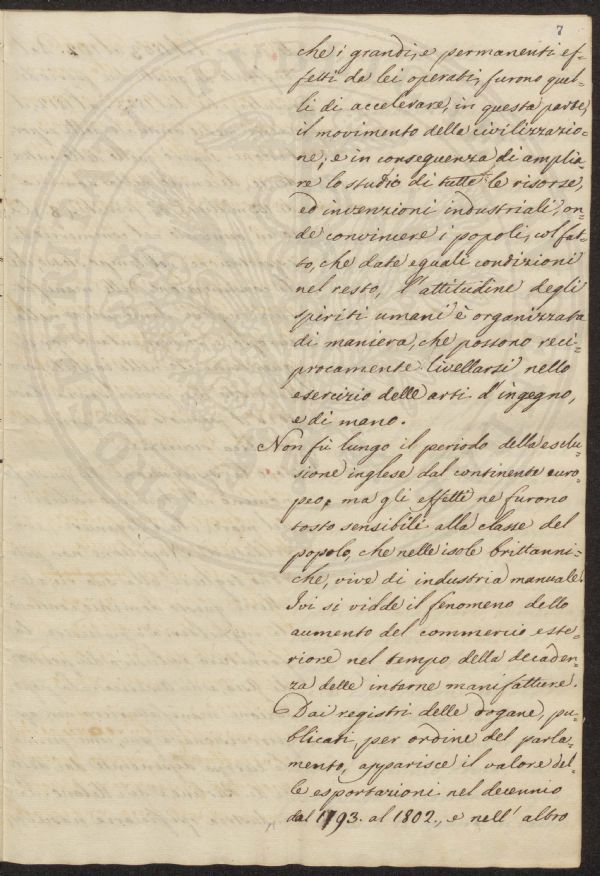 7
che i grandi, e permanenti ef-
fetti da lei operati, furono quel-
li di accelerare, in questa parte,
il movimento della civilizzazio-
ne, e in conseguenza di amplia-
re lo studio di tutte le risorse,
ed invenzioni industriali, on-
de convincere i popoli, col fat-
to, che date eguali condizioni
nel resto, l'attitudine degli
spiriti umani è organizzata
di maniera, che possono reci-
procamente livellarsi nello
esercizio delle arti d'ingegno,
e di mano.
Non fù lungo il periodo della esclu-
sione inglese dal continente euro-
peo, ma gli effetti ne furono
tosto sensibili alla classe del
popolo, che nelle isole brittanni-
che, vive di industria manuale.
Ivi si vidde il fenomeno dello
aumento del commercio este-
riore nel tempo della decaden-
za delle interne manifatture.
Dai registri delle dogane, pu-
blicati, per ordine del parla-
mento, apparisce il valore del-
le esportazioni nel decennio
dal 1793. al 1802., e nell'altro